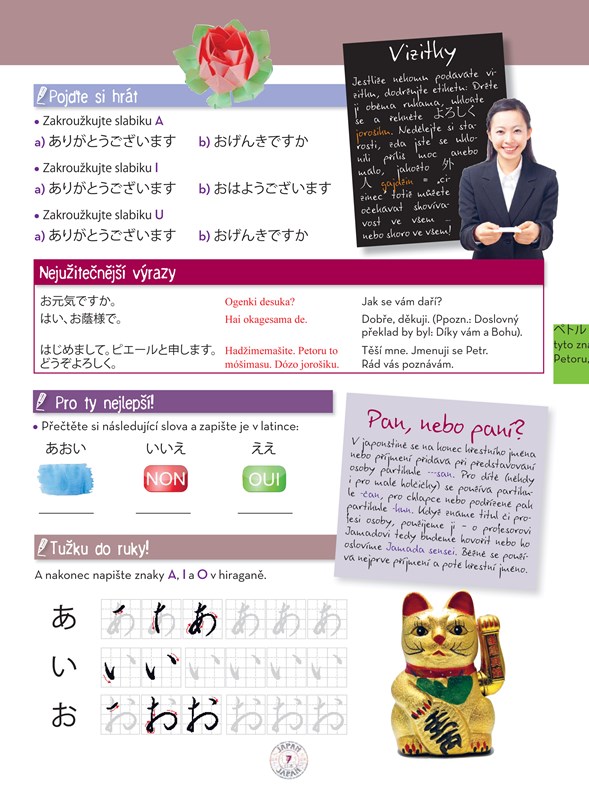 Pojďte si hrát
• Zakroužkujte slabiku A
a) ありがとうございます b) おげんきですか
• Zakroužkujte slabiku I
a) ありがとうございます b) おはようございます
• Zakroužkujte slabiku U
a) ありがとうございます b) おげんきですか
Vizitky
Jestliže někomu podáváte vi-
zitku, dodržujte etiketu: Držte
ji oběma rukama, ukloňte
se a řekněte よろしく
jorošiku. Nedělejte si sta-
rosti, zda jste se uklo-
nili příliš moc anebo
málo, jakožto 外
人 gajdžin = „ci-
zinec“ totiž můžete
očekávat shovíva-
vost ve všem –
nebo skoro ve všem!
Nejužitečnější výrazy
お元気ですか。 Ogenki desuka? Jak se vám daří?
はい、お蔭様で。 Hai okagesama de. Dobře, děkuji. (Ppozn.: Doslovný
překlad by byl: Díky vám a Bohu).
はじめまして。ピエールと申します。 Hadžimemašite. Petoru to Těší mne. Jmenuji se Petr.
どうぞよろしく。 móšimasu. Dózo jorošiku. Rád vás poznávám.
ペトル
tyto zna
Petoru,
Pro ty nejlepší!
• Přečtěte si následující slova a zapište je v latince:
あおい いいえ ええ
NON OUI
Pan, nebo paní?
V japonštině se na konec křestního jména
nebo příjmení přidává při představování
osoby partikule -san. Pro dítě (někdy
i pro malé holčičky) se používá partiku-
le -čan, pro chlapce nebo podřízené pak
partikule -kun. Když známe titul či pro-
fesi osoby, použijeme ji – o profesorovi
Jamadovi tedy budeme hovořit nebo ho
oslovíme Jamada sensei. Běžně se použí-
vá nejprve příjmení a poté křestní jméno.
Tužku do ruky!
A nakonec napište znaky A, I a O v hiraganě.
あ あ あ あ あ あ
い い い い い い い
お お お お お お
JAPAN
7
JAPAN